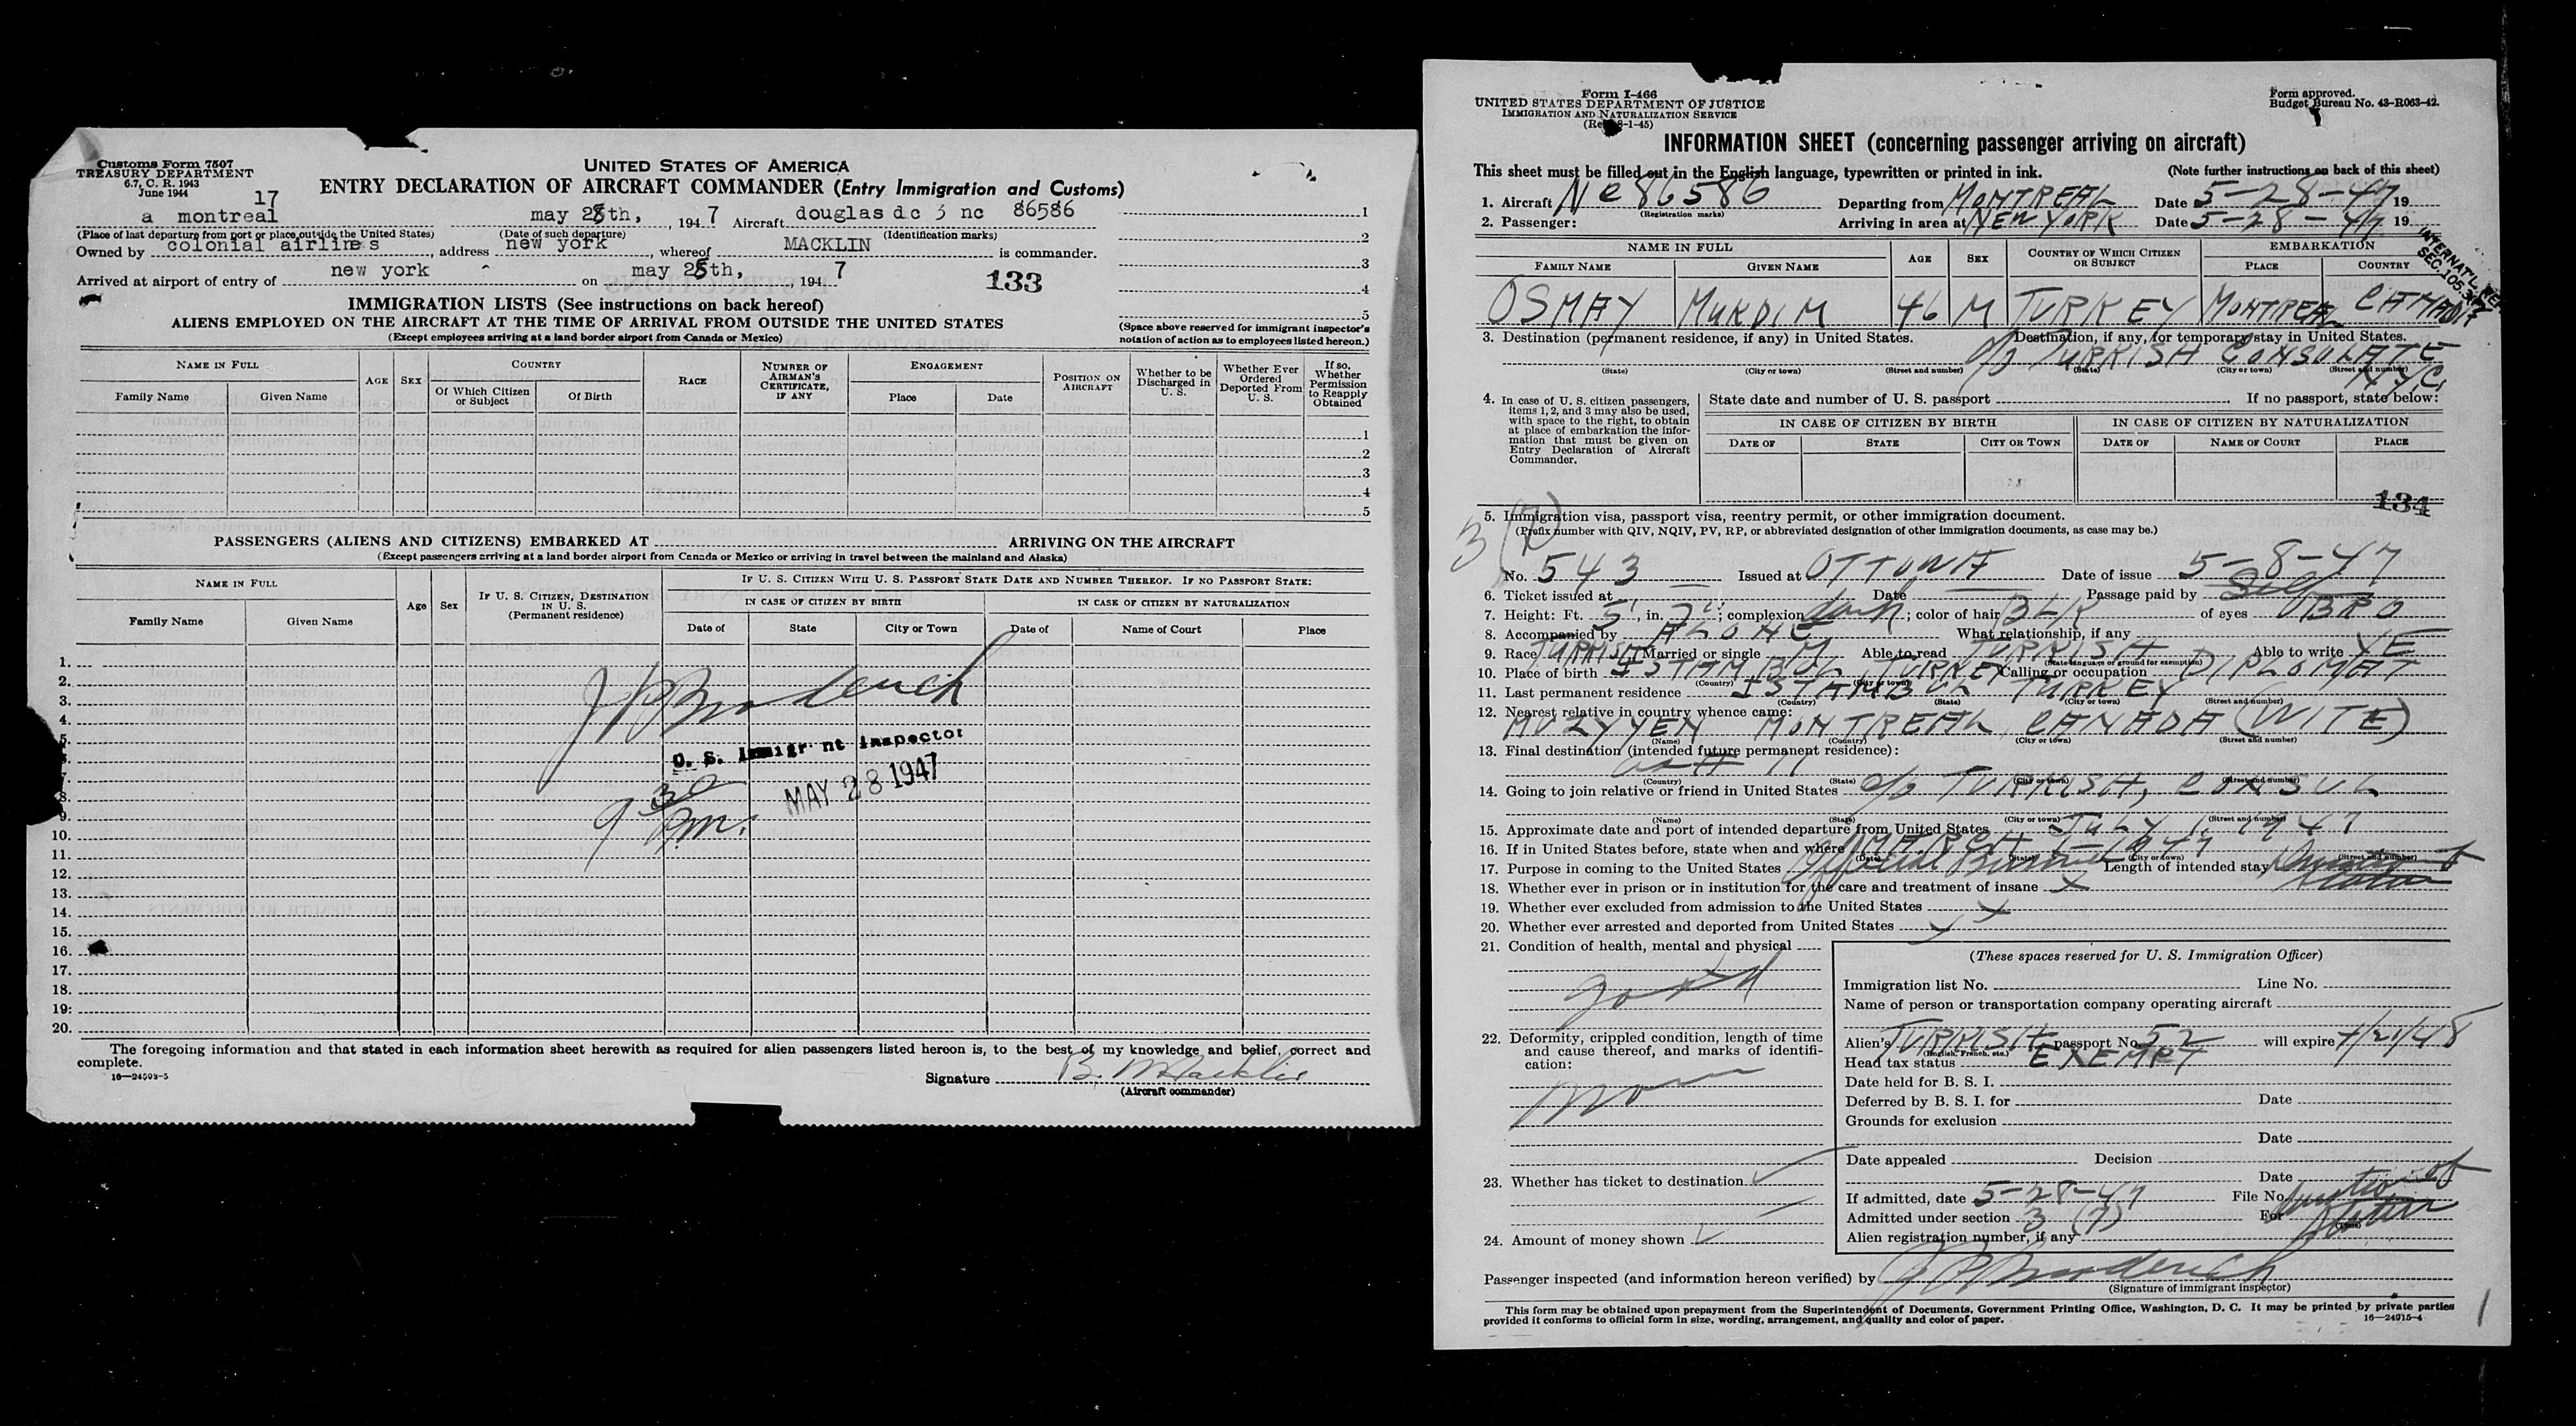 Customs Form 7507
TREASURY DEPARTMENT
6.7, C. R. 1943
June 1944
UNITED STATES OF AMERICA
ENTRY DECLARATION OF AIRCRAFT COMMANDER (Entry Immigration and Customs)
17
a montreal may 28th, 1947 Aircraft douglas dc 3 nc 86586
(Place of last departure from port or place outside the United States) (Date of such departure) (Identification marks)
Owned by colonial airlines, address new york, whereof MACKLIN is commander.
Arrived at airport of entry of new york on may 28th, 1947
133
1
2
3
4
5
(Space above reserved for immigrant inspector's notation of action as to employees listed hereon.)
IMMIGRATION LISTS (See instructions on back hereof)
ALIENS EMPLOYED ON THE AIRCRAFT AT THE TIME OF ARRIVAL FROM OUTSIDE THE UNITED STATES
(Except employees arriving at a land border airport from Canada or Mexico)
NAME IN FULL
Family Name Given Name
AGE SEX
COUNTRY
Of Which Citizen or Subject Of Birth
RACE
NUMBER OF AIRMAN'S CERTIFICATE, IF ANY
ENGAGEMENT
Place Date
POSITION ON AIRCRAFT
Whether to be Discharged in U. S.
Whether Ever Ordered Deported From U. S.
If so, Whether Permission to Reapply Obtained
1
2
3
4
5
PASSENGERS (ALIENS AND CITIZENS) EMBARKED AT ARRIVING ON THE AIRCRAFT
(Except passengers arriving at a land border airport from Canada or Mexico or arriving in travel between the mainland and Alaska)
NAME IN FULL
Family Name Given Name
Age Sex
IF U. S. CITIZEN, DESTINATION IN U. S.
(Permanent residence)
IF U. S. CITIZEN WITH U. S. PASSPORT STATE DATE AND NUMBER THEREOF. IF NO PASSPORT STATE:
IN CASE OF CITIZEN BY BIRTH IN CASE OF CITIZEN BY NATURALIZATION
Date of State City or Town Date of Name of Court Place
1.
2.
3.
4.
5.
8.
9.
10.
11.
12.
13.
14.
15.
16.
17.
18.
19.
20.
J P Broderich
U. S. Immigrant Inspector
MAY 28 1947
9 30 Pm.
The foregoing information and that stated in each information sheet herewith as required for alien passengers listed hereon is, to the best of my knowledge and belief, correct and
complete.
16—24593-5
Signature B. Macklin
(Aircraft commander)
Form I-466
UNITED STATES DEPARTMENT OF JUSTICE
IMMIGRATION AND NATURALIZATION SERVICE
(Rev. 8-1-45)
Form approved.
Budget Bureau No. 43-R063-42.
INFORMATION SHEET (concerning passenger arriving on aircraft)
This sheet must be filled out in the English language, typewritten or printed in ink. (Note further instructions on back of this sheet)
1. Aircraft Nc 86586 Departing from MONTREAL Date 5-28-47 19
(Registration marks)
2. Passenger: Arriving in area at NEW YORK Date 5-28-47 19
NAME IN FULL
FAMILY NAME GIVEN NAME
AGE SEX
COUNTRY OF WHICH CITIZEN OR SUBJECT
EMBARKATION
PLACE COUNTRY
OSMAY MUKDIM 46 M TURKEY MONTREAL CANADA
3. Destination (permanent residence, if any) in United States. Destination, if any, for temporary stay in United States.
c/o TURKISH CONSULATE
N.Y.C.
(State) (City or town) (Street and number) (State) (City or town) (Street and number)
4. In case of U. S. citizen passengers, items 1, 2, and 3 may also be used, with space to the right, to obtain at place of embarkation the information that must be given on Entry Declaration of Aircraft Commander.
State date and number of U. S. passport If no passport, state below:
IN CASE OF CITIZEN BY BIRTH IN CASE OF CITIZEN BY NATURALIZATION
DATE OF STATE CITY OR TOWN DATE OF NAME OF COURT PLACE
134
3 (7)
5. Immigration visa, passport visa, reentry permit, or other immigration document.
(Prefix number with QIV, NQIV, PV, RP, or abbreviated designation of other immigration documents, as case may be.)
No. 543 Issued at OTTOWA Date of issue 5-8-47
6. Ticket issued at Date Passage paid by Self
7. Height: Ft. 5, in. 7; complexion dark; color of hair BLK of eyes BRO
8. Accompanied by ALONE What relationship, if any
9. Race TURKISH Married or single M Able to read TURKISH Able to write YE
(State language or ground for exemption)
10. Place of birth ISTAMBUL TURKEY Calling or occupation DIPLOMAT
(Country) (City or town)
11. Last permanent residence ISTAMBUL TURKEY
(Country) (State) (City or town) (Street and number)
12. Nearest relative in country whence came:
MUZYYEN MONTREAL CANADA (WITE)
(Name) (Country) (City or town) (Street and number)
13. Final destination (intended future permanent residence):
as # 11
(Country) (State) (City or town) (Street and number)
14. Going to join relative or friend in United States c/o TURKISH, CONSUL
(Name) (State) (City or town) (Street and number)
15. Approximate date and port of intended departure from United States JULY 1, 1947
16. If in United States before, state when and where MARCH 1-1947
(Date) (State) (City or town) (Street and number)
17. Purpose in coming to the United States Official Business Length of intended stay Duration of Status
18. Whether ever in prison or in institution for the care and treatment of insane X
19. Whether ever excluded from admission to the United States X
20. Whether ever arrested and deported from United States X
21. Condition of health, mental and physical
good
22. Deformity, crippled condition, length of time and cause thereof, and marks of identification:
None
23. Whether has ticket to destination ✓
24. Amount of money shown ✓
(These spaces reserved for U. S. Immigration Officer)
Immigration list No. Line No.
Name of person or transportation company operating aircraft
Alien's TURKISH passport No. 52 will expire 4/21/48
(English, French, etc.)
Head tax status EXEMPT
Date held for B. S. I.
Deferred by B. S. I. for Date
Grounds for exclusion
Date
Date appealed Decision
Date
If admitted, date 5-28-47 File No.
Admitted under section 3 (7) For Duration of Status
(Time)
Alien registration number, if any
Passenger inspected (and information hereon verified) by J P Broderich
(Signature of immigrant inspector)
This form may be obtained upon prepayment from the Superintendent of Documents, Government Printing Office, Washington, D. C. It may be printed by private parties
provided it conforms to official form in size, wording, arrangement, and quality and color of paper.
16—24915-4